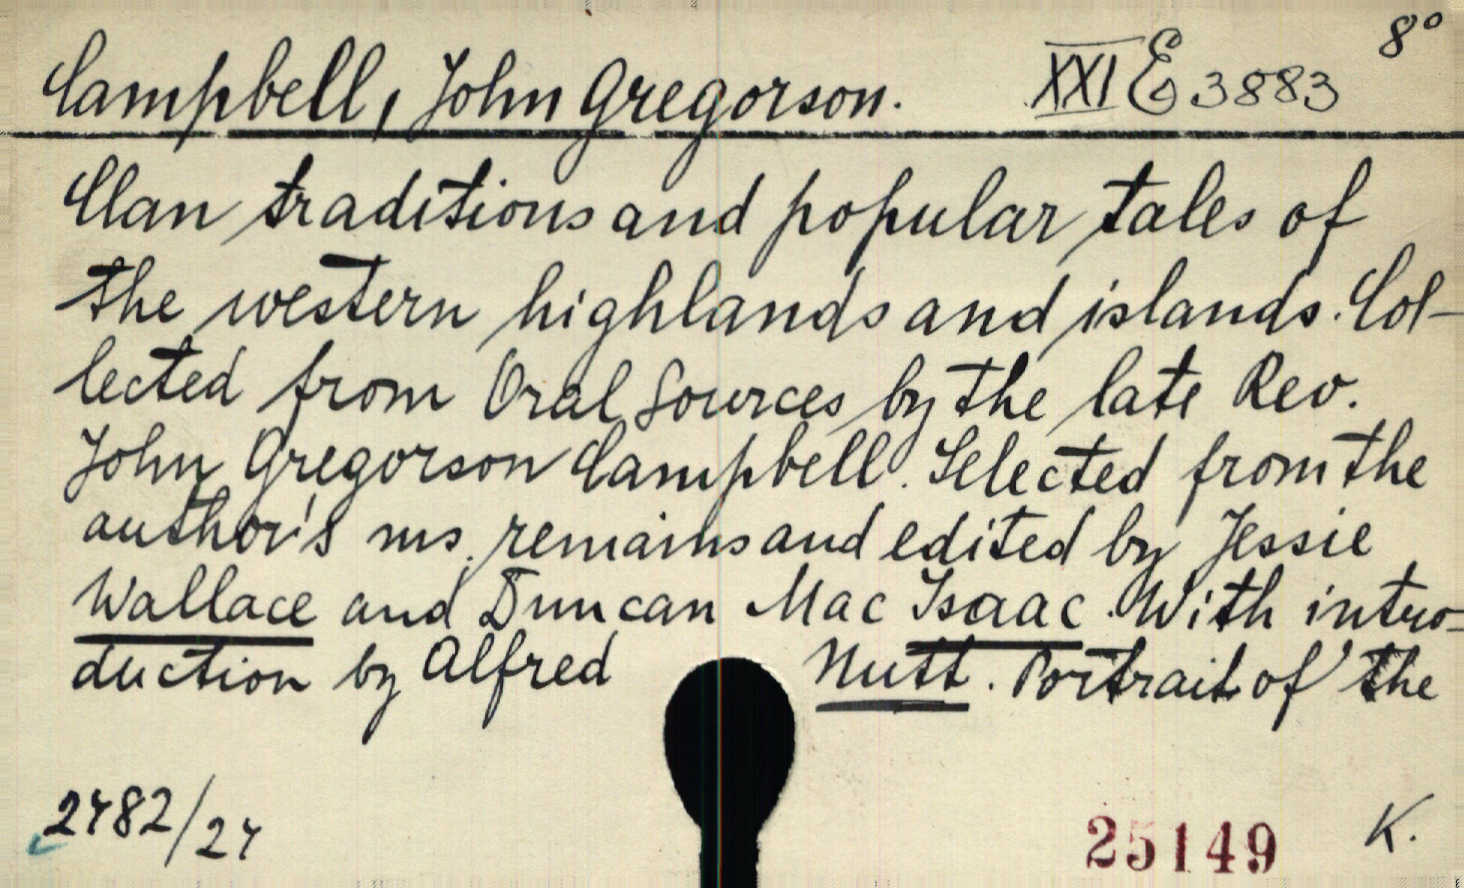 8°
Campbell, John Gregorson. XXI E 3883
Clan traditions and popular tales of
the western highlands and islands. Col-
lected from Oral Sources by the late Rev.
John Gregorson Campbell. Selected from the
author's ms. remains and edited by Jessie
Wallace and Duncan Mac Isaac. With intro-
duction by Alfred Nutt. Portrait of the
2482/24
25149
K.